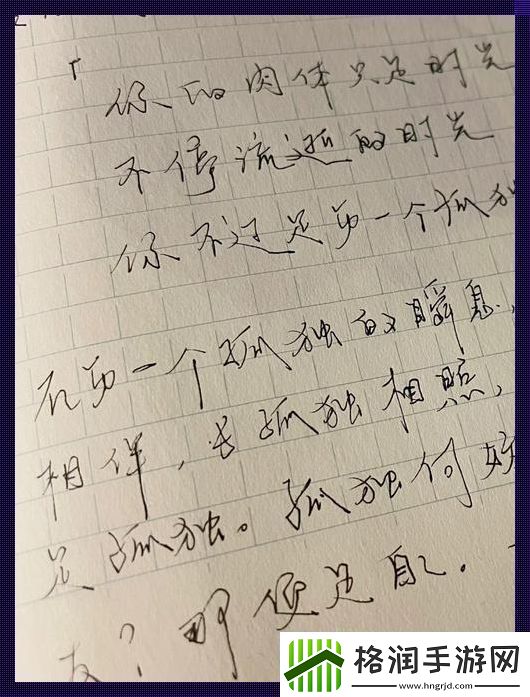 「你的肉体只是时光
不停流逝的时光
你不过是每一个孤独
在每一个孤独的瞬息,
相伴,与孤独相照,
是孤独。孤独何好
友?那便是酡.
格润手游网
www.hngrjd.com